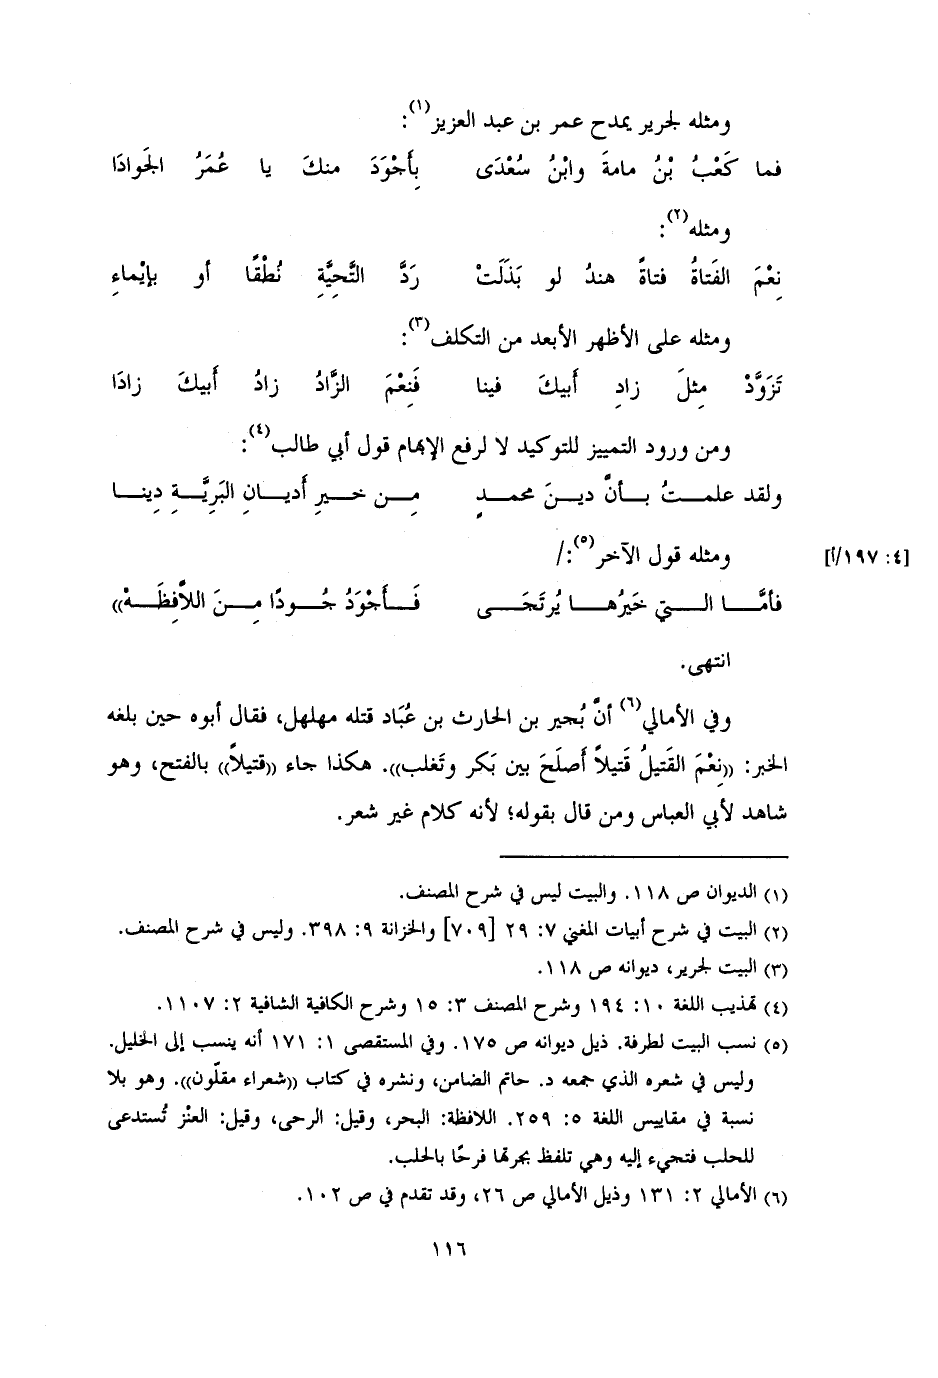 ومثله لجرير يمدح عمر بن عبد العزيز(١):
فما كَعْبُ بْنُ مامةَ وابْنُ سُعْدَى بِأَجْوَدَ منكَ يا عُمَرُ الجَوادَا
ومثله(٢):
نِعْمَ الفَتاةُ فتاةً هندُ لو بَذَلَتْ رَدَّ التَّحِيَّةِ نُطْقًا أو بإيْماءِ
ومثله على الأظهر الأبعد من التكلف(٣):
تَزَوَّدْ مِثلَ زادِ أَبيكَ فينا فَنِعْمَ الزَّادُ زادُ أَبيكَ زادَا
ومن ورود التمييز للتوكيد لا لرفع الإبهام قول أبي طالب(٤):
ولقد علمتُ بأنَّ دينَ محمدٍ مِن خيرِ أَديانِ البَرِيَّةِ دِينا
ومثله قول الآخر(٥):/ [٤: ١٩٧/أ]
فأمَّا التي خَيرُها يُرتَجَى فَأَجْوَدُ جُودًا مِنَ اللاَّفِظَهْ»
انتهى.
وفي الأمالي(٦) أنَّ بُجير بن الحارث بن عُبَاد قتله مهلهل، فقال أبوه حين بلغه
الخبر: «نِعْمَ القَتيلُ قَتيلاً أَصلَحَ بين بَكر وتَغلب». هكذا جاء «قتيلاً» بالفتح، وهو
شاهد لأبي العباس ومن قال بقوله؛ لأنه كلام غير شعر.
(١) الديوان ص ١١٨. والبيت ليس في شرح المصنف.
(٢) البيت في شرح أبيات المغني ٧: ٢٩ [٧٠٩] والخزانة ٩: ٣٩٨. وليس في شرح المصنف.
(٣) البيت لجرير، ديوانه ص ١١٨.
(٤) تهذيب اللغة ١٠: ١٩٤ وشرح المصنف ٣: ١٥ وشرح الكافية الشافية ٢: ١١٠٧.
(٥) نسب البيت لطرفة. ذيل ديوانه ص ١٧٥. وفي المستقصى ١: ١٧١ أنه ينسب إلى الخليل.
وليس في شعره الذي جمعه د. حاتم الضامن، ونشره في كتاب «شعراء مقلّون». وهو بلا
نسبة في مقاييس اللغة ٥: ٢٥٩. اللافظة: البحر، وقيل: الرحى، وقيل: العنْز تُستدعى
للحلب فتجيء إليه وهي تلفظ بجرتها فرحًا بالحلب.
(٦) الأمالي ٢: ١٣١ وذيل الأمالي ص ٢٦، وقد تقدم في ص ١٠٢.
١١٦